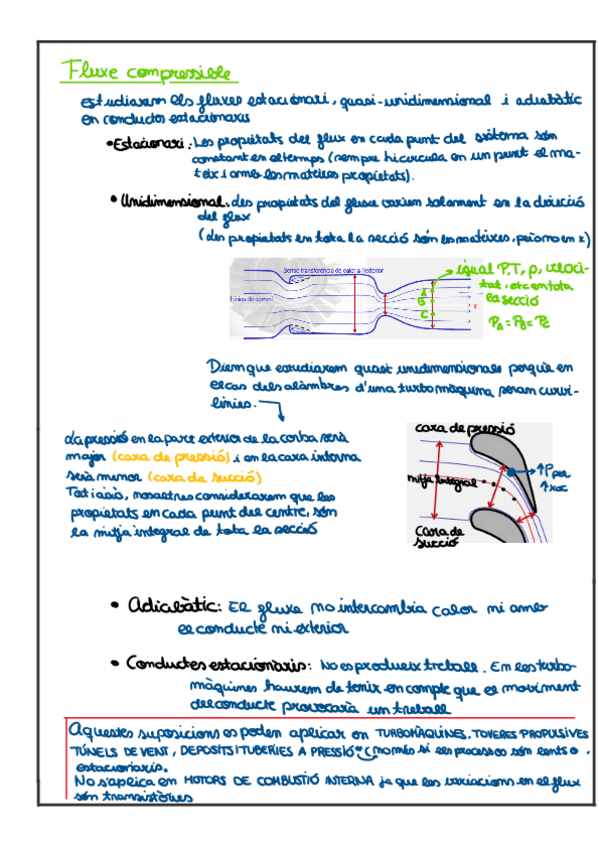 Fluxe compressible
Estudiarem els fluxes estacionari, quasi-unidimensional i adiabàtic
en conductos estacionaris
• Estacionari: Les propietats del flux en cada punt del sistema són
constant en el temps (sempre hi circula en un punt el ma-
teix i amb les mateixes propietats).
• Unidimensional: les propietats del fluxe varien solament en la direcció
del flux
(les propietats en tota la secció són les mateixes, però no en x)
Sense transferència de calor a l'exterior
Línies de corrent
A
B
C
x
igual P, T, ρ, veloci-
tat, etc en tota
la secció
PA = PB = PC
Diem que estudiarem quasi unidimensionals perquè en
el cas dels alàmbres d'una turbomàquina seran curvi-
línies.
La pressió en la part exterior de la corba serà
major (cara de pressió) i en la cara interna
serà menor (cara de succió)
Tot i això, nosaltres considerarem que les
propietats en cada punt del centre, són
la mitja integral de tota la secció
cara de pressió
mitja integral
cara de
succió
• Adiabàtic: El fluxe no intercambia calor ni amb
el conducte ni exterior
• Conductes estacionaris: No es produeix treball. En les turbo-
màquines haurem de tenir en compte que el moviment
del conducte provocarà un treball
Aquestes suposicions es poden aplicar en TURBOMÀQUINES, TOVERES PROPULSIVES
TÚNELS DE VENT, DEPOSITS I TUBERIES A PRESSIÓ* (només si els processos són lents o
estacionaris.
No s'aplica en MOTORS DE COMBUSTIÓ INTERNA ja que les variacions en el flux
són transitòries